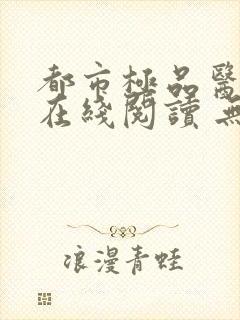 都市極品醫
在綫閱讀 無
浪漫青蛙